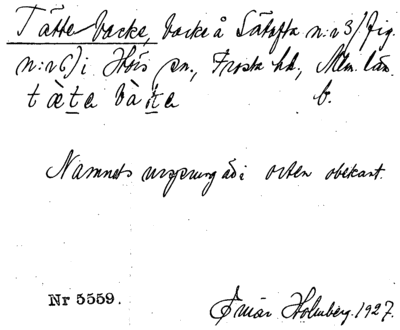 Tättebacke, backe å Sätofta n:o 3 (fig.
n:o 6) i Hörs sn., Frosta hd., Mlm. län.
tæ̀ta bàḵa b.
Namnets ursprung är i orten obekant.
Nr 5559. Einar Holmberg. 1927.